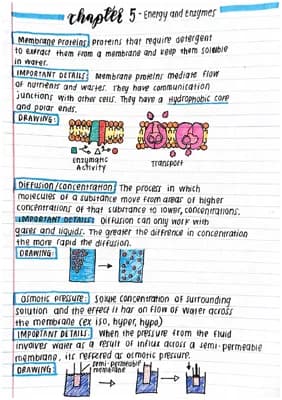 chapter 5 - Energy and Enzymes
Membrane Proteins: Proteins that require detergent
to extract them from a membrane and keep them soluble
in water.
IMPORTANT DETAILS: Membrane proteins mediate flow
of nutrients and wastes. They have communication
junctions with other cells. They have a hydrophobic core
and polar ends.
DRAWING:
Enzymatic
Activity
Transport
Diffusion/concentration: The process in which
molecules of a substance move from areas of higher
concentrations of that substance to lower concentrations.
IMPORTANT DETAILS: Diffusion can only work with
gases and liquids. The greater the difference in concentration
the more rapid the diffusion.
DRAWING:
Osmotic pressure: Solute concentration of surrounding
solution and the effect it has on flow of water across
the membrane (ex iso, hyper, hypo)
IMPORTANT DETAILS: When the pressure from the fluid
involves water as a result of influx across a semi-permeable
membrane, its referred as osmotic pressure.
DRAWING:
semi-permeable
membrane